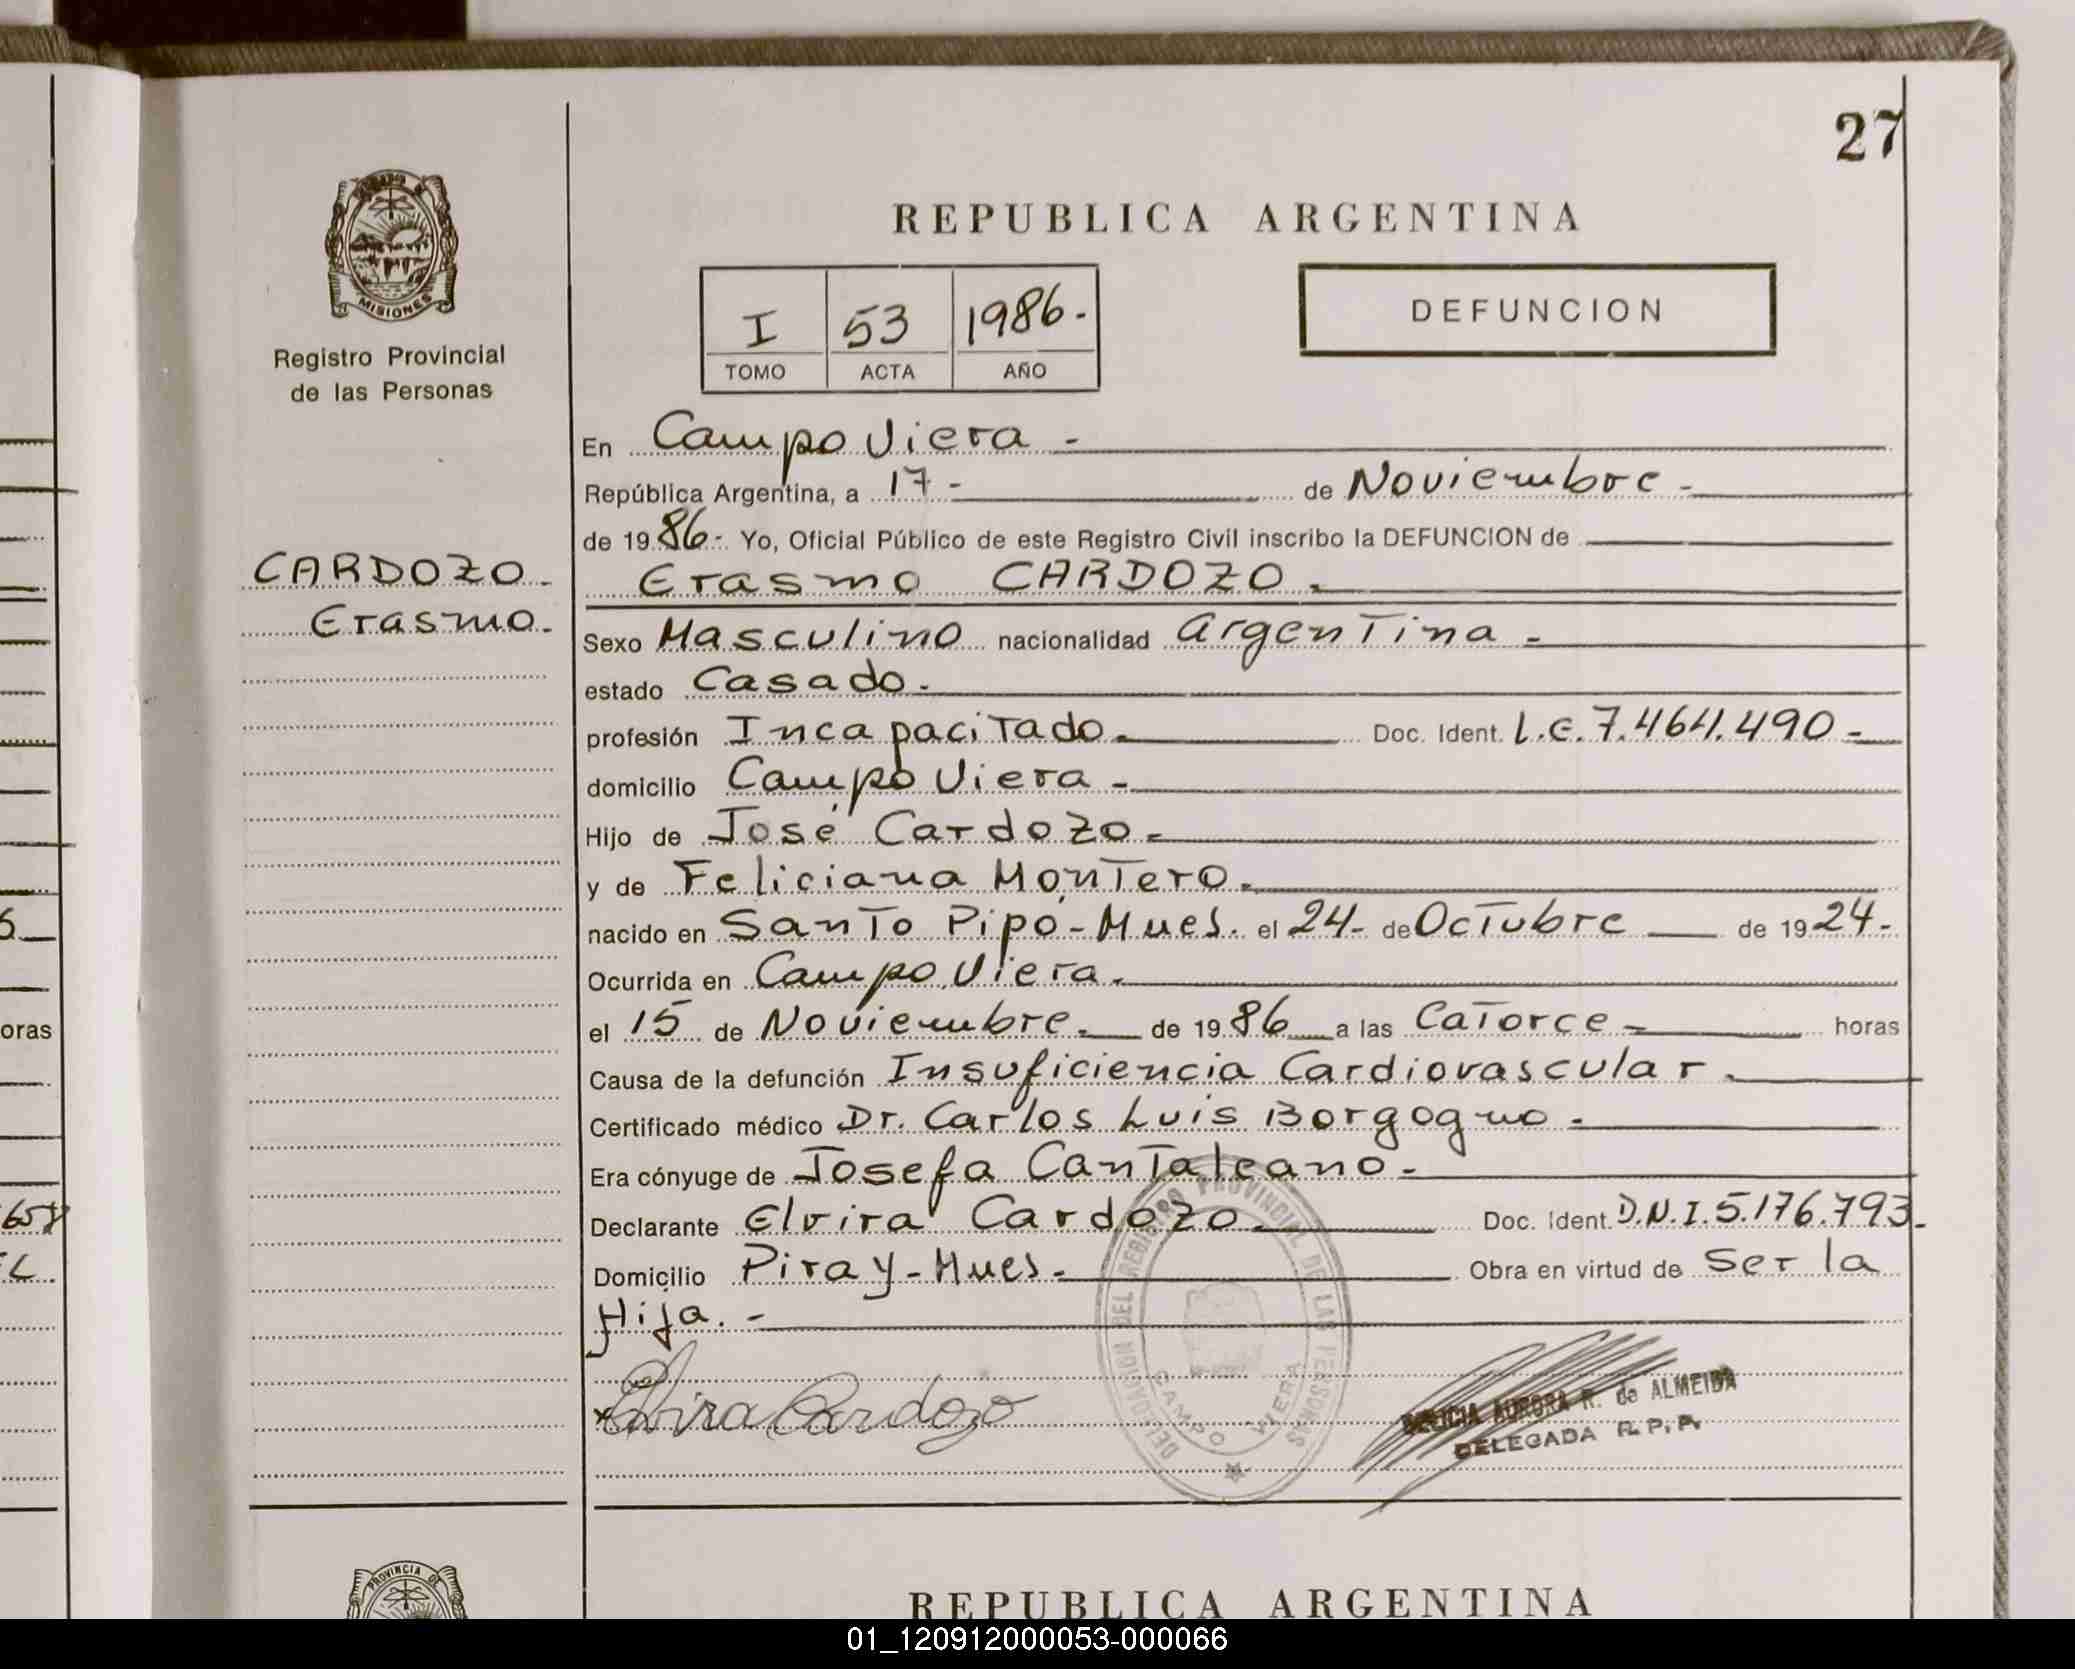 27
MISIONES
Registro Provincial
de las Personas
REPUBLICA ARGENTINA
I 53 1986.-
TOMO ACTA AÑO
DEFUNCION
CARDOZO.
Erasmo.
En Campo Viera -
República Argentina, a 17 - de Noviembre -
de 1986.- Yo, Oficial Público de este Registro Civil inscribo la DEFUNCION de
Erasmo CARDOZO.
Sexo Masculino nacionalidad argentina -
estado Casado.
profesión Incapacitado. Doc. Ident. L.E. 7.464.490 -
domicilio Campo Viera -
Hijo de José Cardozo -
y de Feliciana Montero.
nacido en Santo Pipó - Mnes. el 24 - de Octubre de 1924 -
Ocurrida en Campo Viera.
el 15 de Noviembre. de 1986 a las Catorce - horas
Causa de la defunción Insuficiencia Cardiovascular.
Certificado médico Dr. Carlos Luis Borgogno -
Era cónyuge de Josefa Cantaleano -
Declarante Elvira Cardozo. Doc. Ident. D.N.I. 5.176.793 -
Domicilio Piray - Mnes - Obra en virtud de ser la
Hija. -
Elvira Cardozo
DELEGACION DEL REGISTRO PROVINCIAL DE LAS PERSONAS
CAMPO VIERA
AURORA R. de ALMEIDA
DELEGADA R.P.P.
oras
PROVINCIA DE
REPUBLICA ARGENTINA
01_120912000053-000066